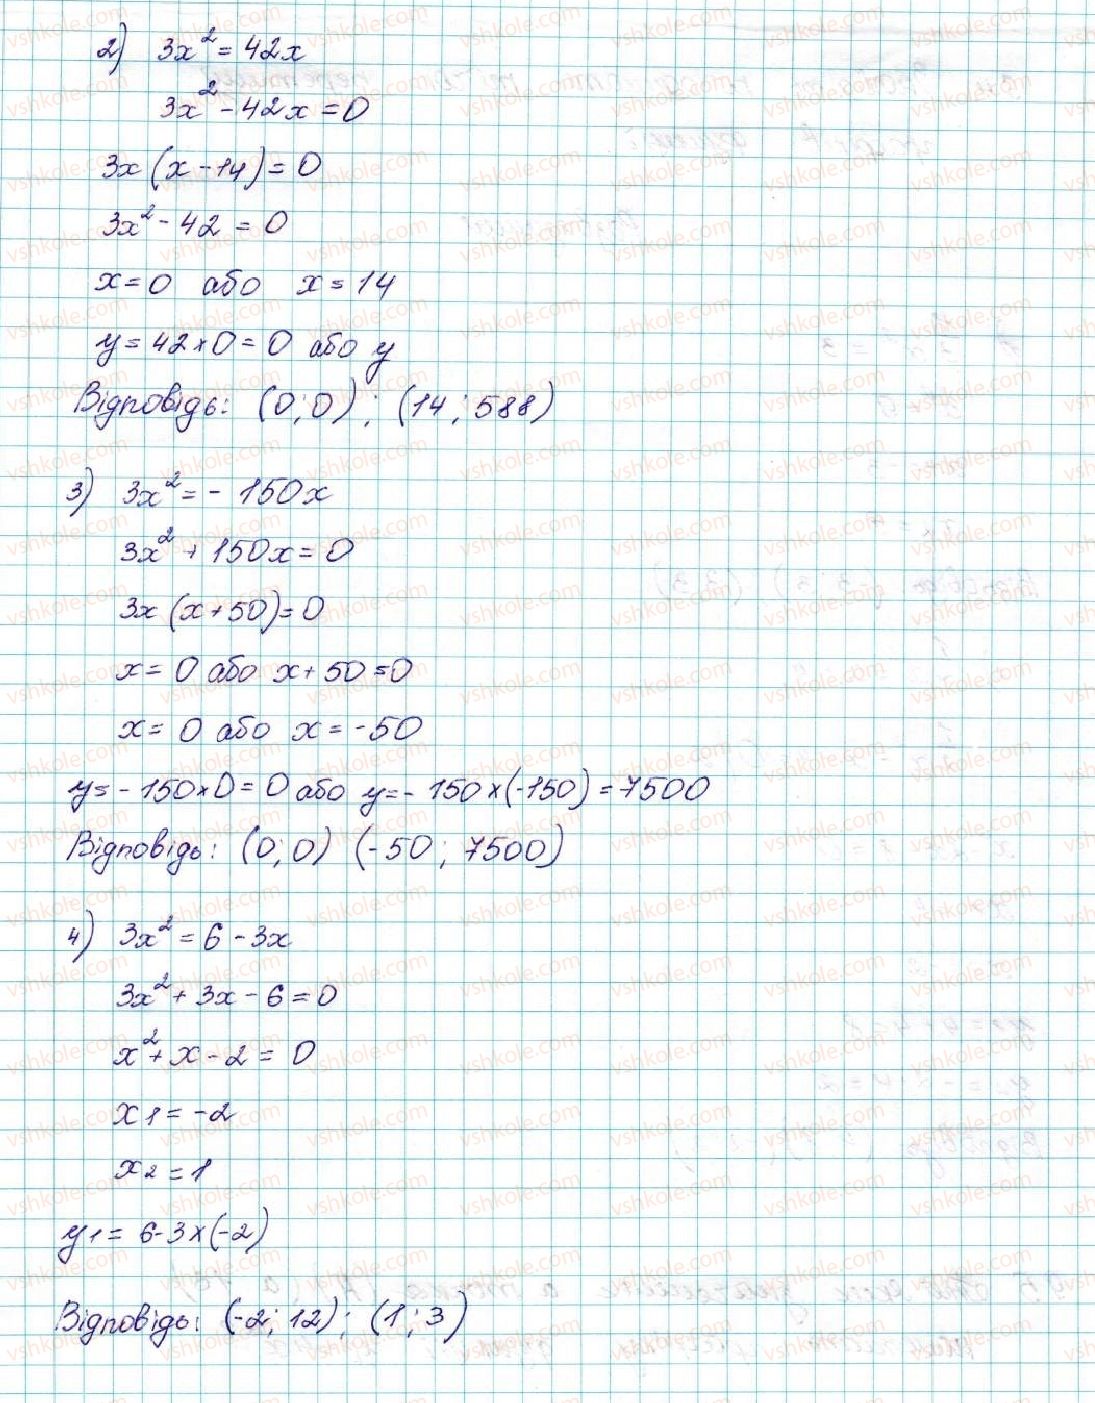 2) 3x² = 42x
3x² - 42x = 0
3x (x - 14) = 0
3x² - 42 = 0
x = 0 або x = 14
y = 42 × 0 = 0 або y
Відповідь: (0; 0) ; (14 ; 588)
3) 3x² = - 150x
3x² + 150x = 0
3x (x + 50) = 0
x = 0 або x + 50 = 0
x = 0 або x = -50
y = - 150 × 0 = 0 або y = - 150 × (-150) = 7500
Відповідь: (0; 0) (-50 ; 7500)
4) 3x² = 6 - 3x
3x² + 3x - 6 = 0
x² + x - 2 = 0
x1 = -2
x2 = 1
y1 = 6 - 3 × (-2)
Відповідь: (-2; 12) ; (1 ; 3)